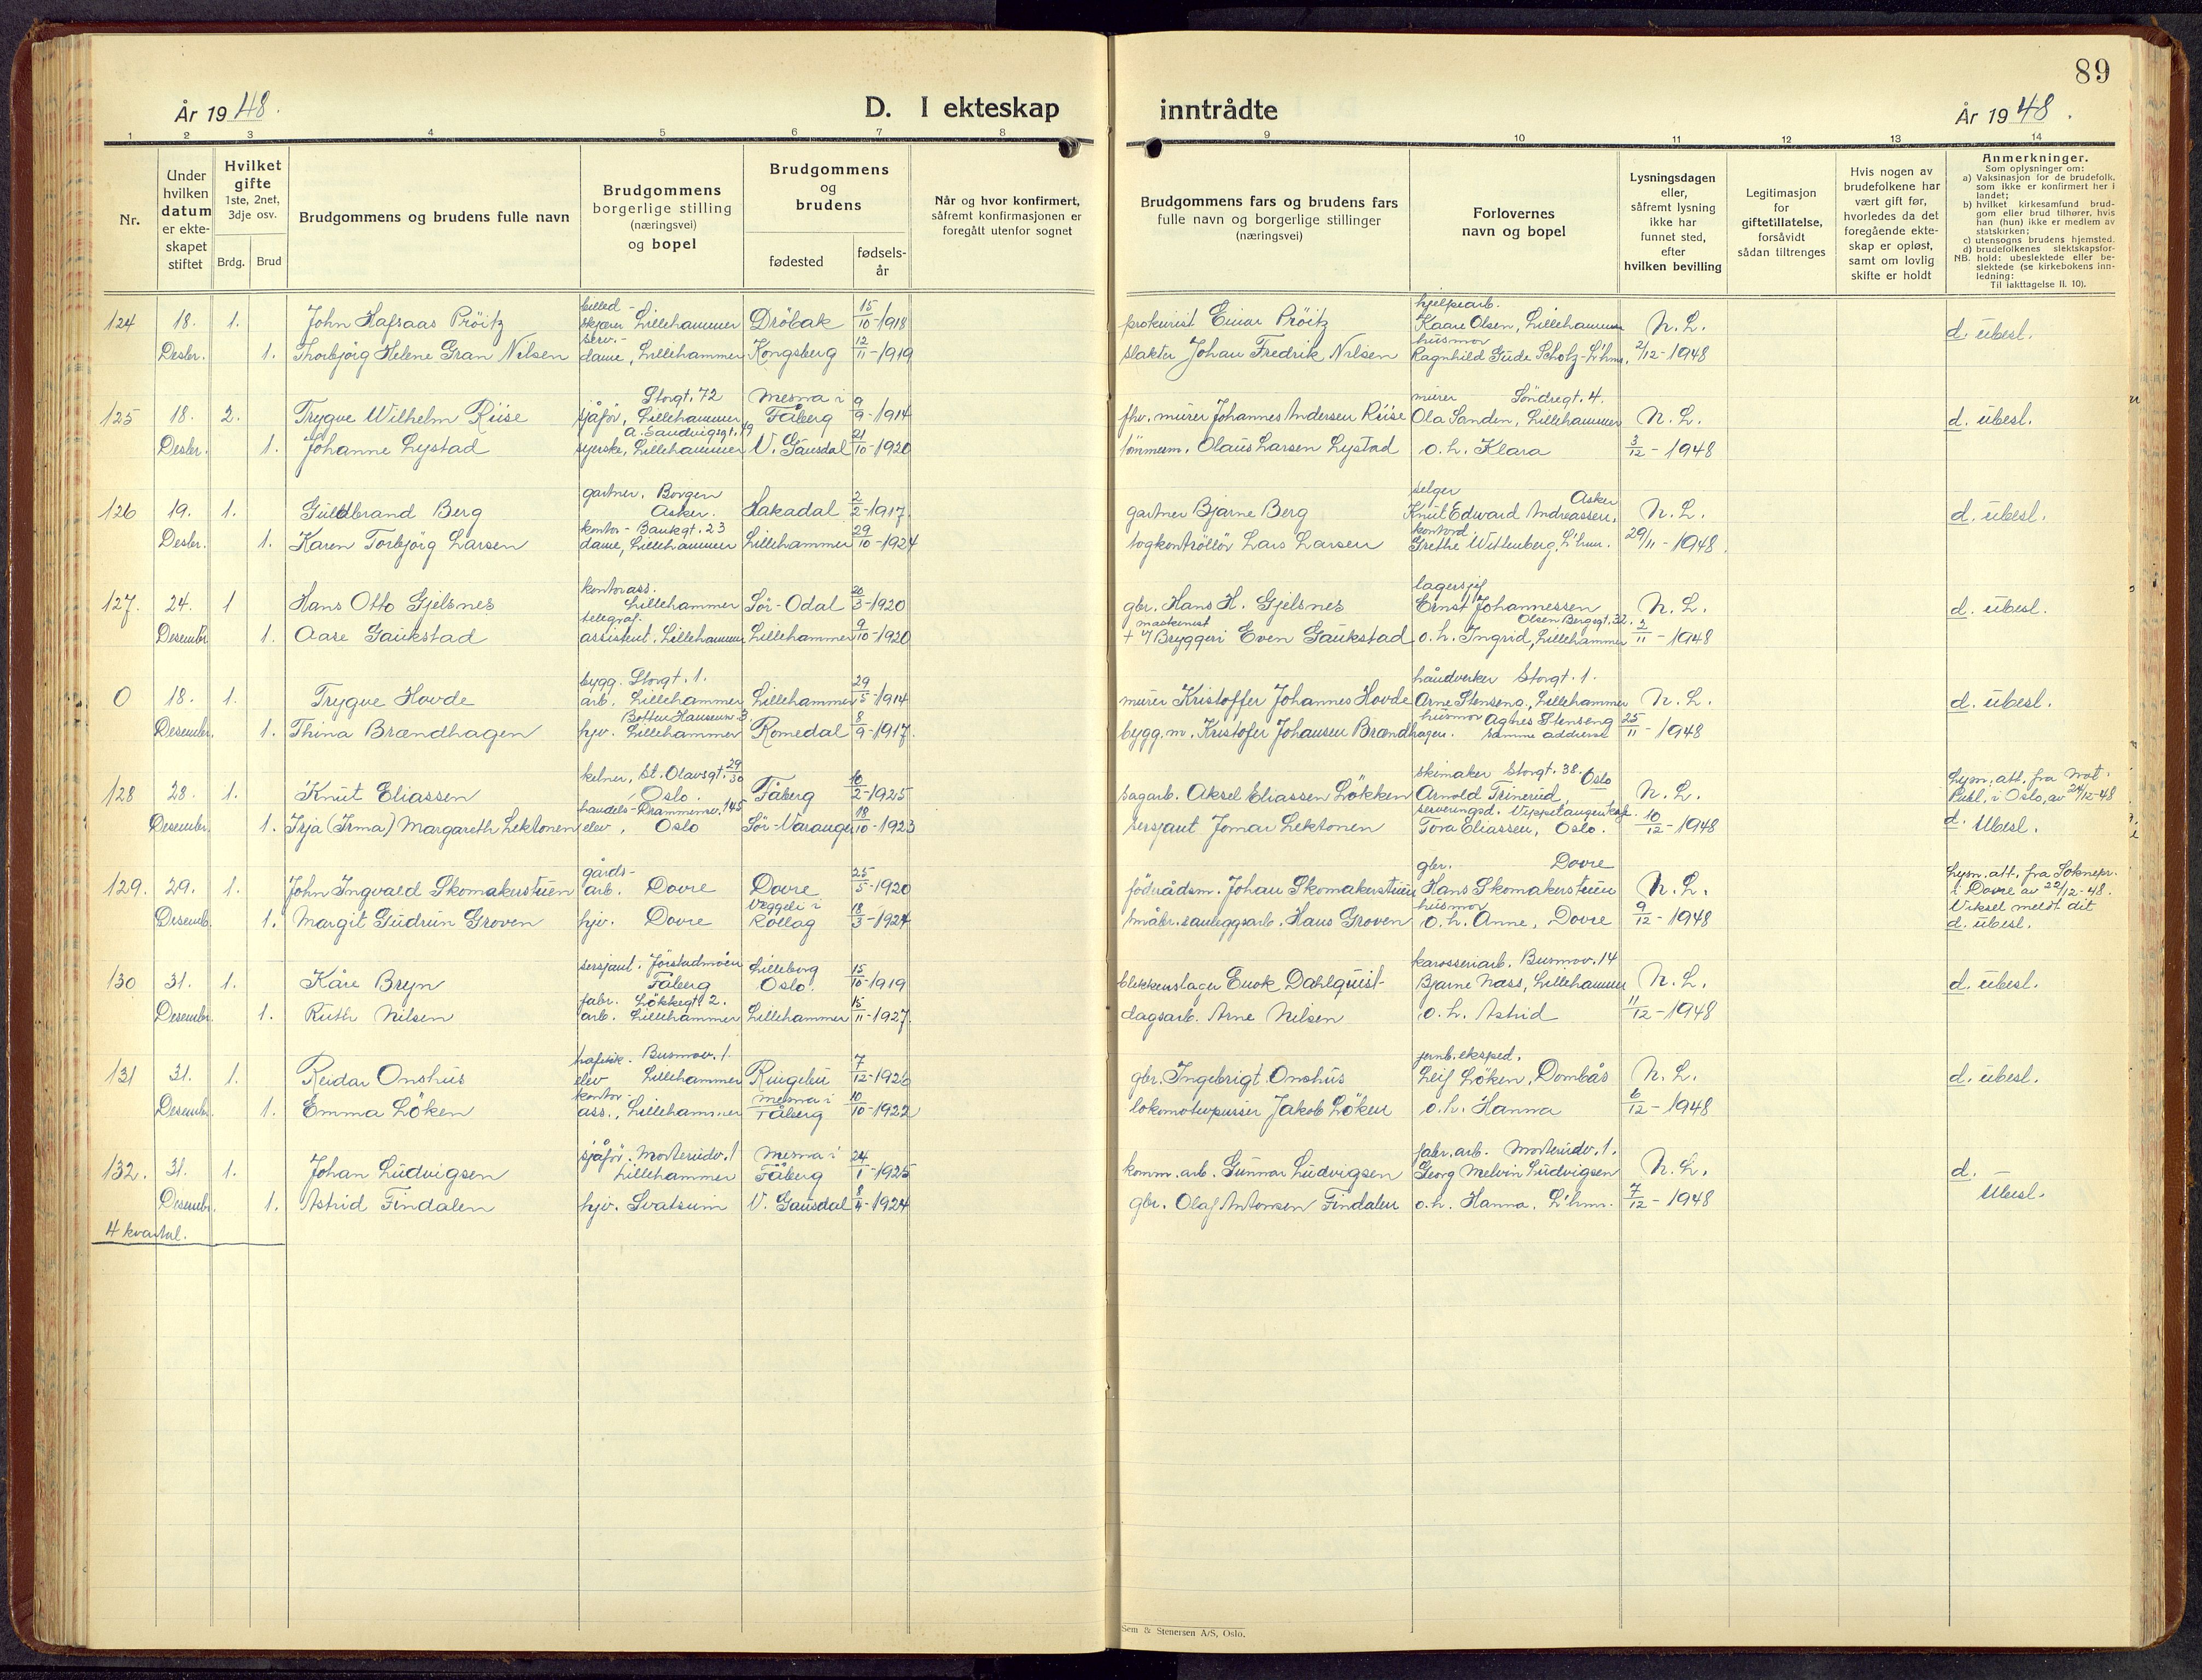 89
År 1948.
D. I ekteskap inntrådte
År 1948.
1 2 3 4 5 6 7 8 9 10 11 12 13 14
Nr.
Under hvilken datum er ekte-skapet stiftet
Hvilket gifte 1ste, 2net, 3dje osv.
Brdg. Brud
Brudgommens og brudens fulle navn
Brudgommens borgerlige stilling (næringsvei) og bopel
Brudgommens og brudens
fødested
fødsels-år
Når og hvor konfirmert, såfremt konfirmasjonen er foregått utenfor sognet
Brudgommens fars og brudens fars fulle navn og borgerlige stillinger (næringsvei)
Forlovernes navn og bopel
Lysningsdagen eller, såfremt lysning ikke har funnet sted, efter hvilken bevilling
Legitimasjon for giftetillatelse, forsåvidt sådan tiltrenges
Hvis nogen av brudefolkene har vært gift før, hvorledes da det foregående ekte-skap er opløst, samt om lovlig skifte er holdt
Anmerkninger.
Som oplysninger om:
a) Vaksinasjon for de brudefolk, som ikke er konfirmert her i landet;
b) hvilket kirkesamfund brud-gom eller brud tilhører, hvis han (hun) ikke er medlem av statskirken;
c) utensogns brudens hjemsted.
d) brudefolkenes slektskapsfor-
NB. hold: ubeslektede eller be-slektede (se kirkebokens inn-ledning:
Til iakttagelse II. 10).
124 18. 1. John Hafsaas Pröitz billed-skjærer Lillehammer Dröbak 15/10-1918 prokurist Einar Pröitz hjelpearb. Kaare Olsen, Lillehammer N. L. d. übesl.
Desbr. 1. Thorbjörg Helene Gran Nilsen serv.-dame, Lillehammer Kongsberg 12/11-1919 slakter Johan Fredrik Nilsen husmor Ragnhild Gude Scholz-L'hmr. 2/12-1948
125 18. 2. Trygve Wilhelm Riise Storgt. 72 sjåför, Lillehammer Mesna i Fåberg 9/9-1914 fhv. murer Johannes Andersen Riise murer Söndregt. 4. Ola Sanden, Lillehammer N. L. d. übesl.
Desbr. 1. Johanne Lystad A. Sandvigsgt. 49 syerske, Lillehammer V. Gausdal 21/10-1920 tömmerm. Olaus Larsen Lystad o. h. Klara 3/12-1948
126 19. 1. Guldbrand Berg gartner. Borgen Asker. Hakadal 2/2-1917. gartner Bjarne Berg selger Asker Knut Edward Andreassen, N. L. d. übesl.
Desbr. 1. Karen Torbjörg Larsen kontor-Bankgt. 23 dame, Lillehammer Lillehammer 29/10-1924 togkontröllör Lars Larsen kontord. Grethe Wittenberg, L'hmr. 29/11-1948.
127. 24. 1 Hans Otto Gjelsnes kontorass. Lillehammer Sör-Odal 20/3-1920 gbr. Hans H. Gjelsnes lagersjef Ernst Johannessen N. L. d. übesl.
Desembr. 1. Aase Gaukstad telegraf-assistent. Lillehammer Lillehammer 9/10-1920 + maskinist v/ Bryggeri Even Gaukstad Olsen Bergsgt. 32. o. h. Ingrid, Lillehammer 2/11-1948
0 18. 1. Trygve Hovde bygg. Storgt. 1. arb. Lillehammer Lillehammer 29/5-1914 murer Kristoffer Johannes Hovde håndverker Storgt. 1. Arne Stenseng, Lillehammer N. L. d. übesl.
Desember. 1. Thina Brændhagen Botten Hansensv. 3 hjv. Lillehammer Romedal 8/9-1917. bygg. m. Kristofer Johansen Brændhagen. husmor Agnes Stenseng samme addresse 25/11-1948
128 28. 1. Knut Eliassen kelner, St. Olavsgt. 29/30 Oslo. Fåberg 10/2-1925 sagarb. Aksel Eliassen Lökken skimaker Storgt. 38. Oslo Arnold Trinerud N. L. Lysn. att. fra Not. Publ. i Oslo, av 24/12-48
Desember. 1. Irja (Irma) Margareth Lektonen handels-Drammensv. 145 elev, Oslo Sör-Varanger 18/10-1923 sersjant Jomar Lektonen serveringsd. Vippetangen Tora Eliassen, Oslo. 10/12-1948 d. übesl.
129. 29. 1. John Ingvald Skomakerstuen gårds-arb. Dovre Dovre 25/5-1920 födrådsm. Johan Skomakerstuen gbr. Dovre Hans Skomakerstuen N. L. Lysn. att. fra Soknepr. i Dovre av 22/12-48.
Desemb. 1. Margit Gudrun Groven hjv. Dovre Veggeli i Rollag 18/3-1924 småbr. & anleggsarb. Hans Groven husmor o. h. Anne, Dovre 9/12-1948 Viksel meldt dit d. übesl.
130 31. 1. Kåre Bryn sersjant. Jörstadmoen Fåberg Lilleborg Oslo. 15/10-1919 blikkenslager Enok Dahlquist karosseriarb. Busmov. 14 Bjarne Næss, Lillehammer N. L. d. übesl.
Desembr. 1. Ruth Nilsen fabr. Lökkegt. 2. arb. Lillehammer Lillehammer 15/11-1927. dagsarb. Arne Nilsen o. h. Astrid 11/12-1948
131 31. 1. Reidar Onshus trafikk. Busmov. 1. elev Lillehammer Ringebu 7/12-1926 gbr. Ingebrigt Onshus jernb. eksped. Leif Löken, Dombås N. L. d. übesl.
Desembr. 1. Emma Löken kontor-ass., Lillehammer Mesna i Fåberg 10/10-1922 lokomotivpusser Jakob Löken o. h. Hanna 6/12-1948
132. 31. 1. Johan Ludvigsen sjåför. Morterudv. 1 Lillehammer Mesna i Fåberg 24/1-1925 komm. arb. Gunnar Ludvigsen fabr. arb. Morterudv. 1. Georg Melvin Ludvigsen N. L. d. übesl.
Desembr. 1. Astrid Findalen hjv. Svatsum V. Gausdal 8/4-1924 gbr. Olaf Antonsen Findalen o. h. Hanna. L'hmr. 7/12-1948
4 kvartal.
Sem & Stenersen A/S, Oslo.